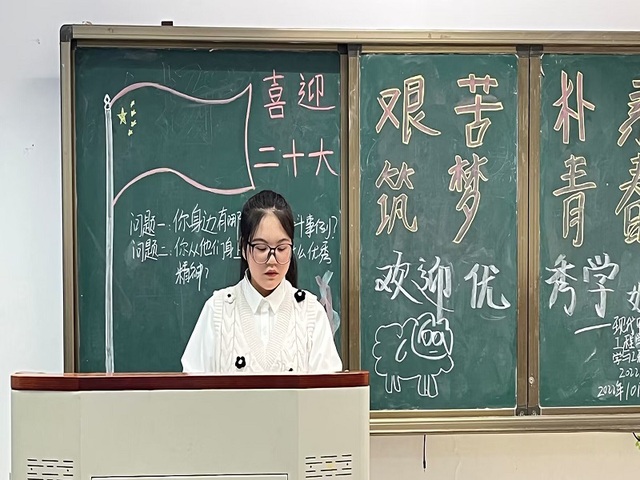 喜迎
二十大
问题一:你身边有哪 斗事例?
问题二:你从他们身上 么优秀
精神?
艰苦 朴素
筑梦 青春
欢迎优秀学
现代
工程
2022
2022年10